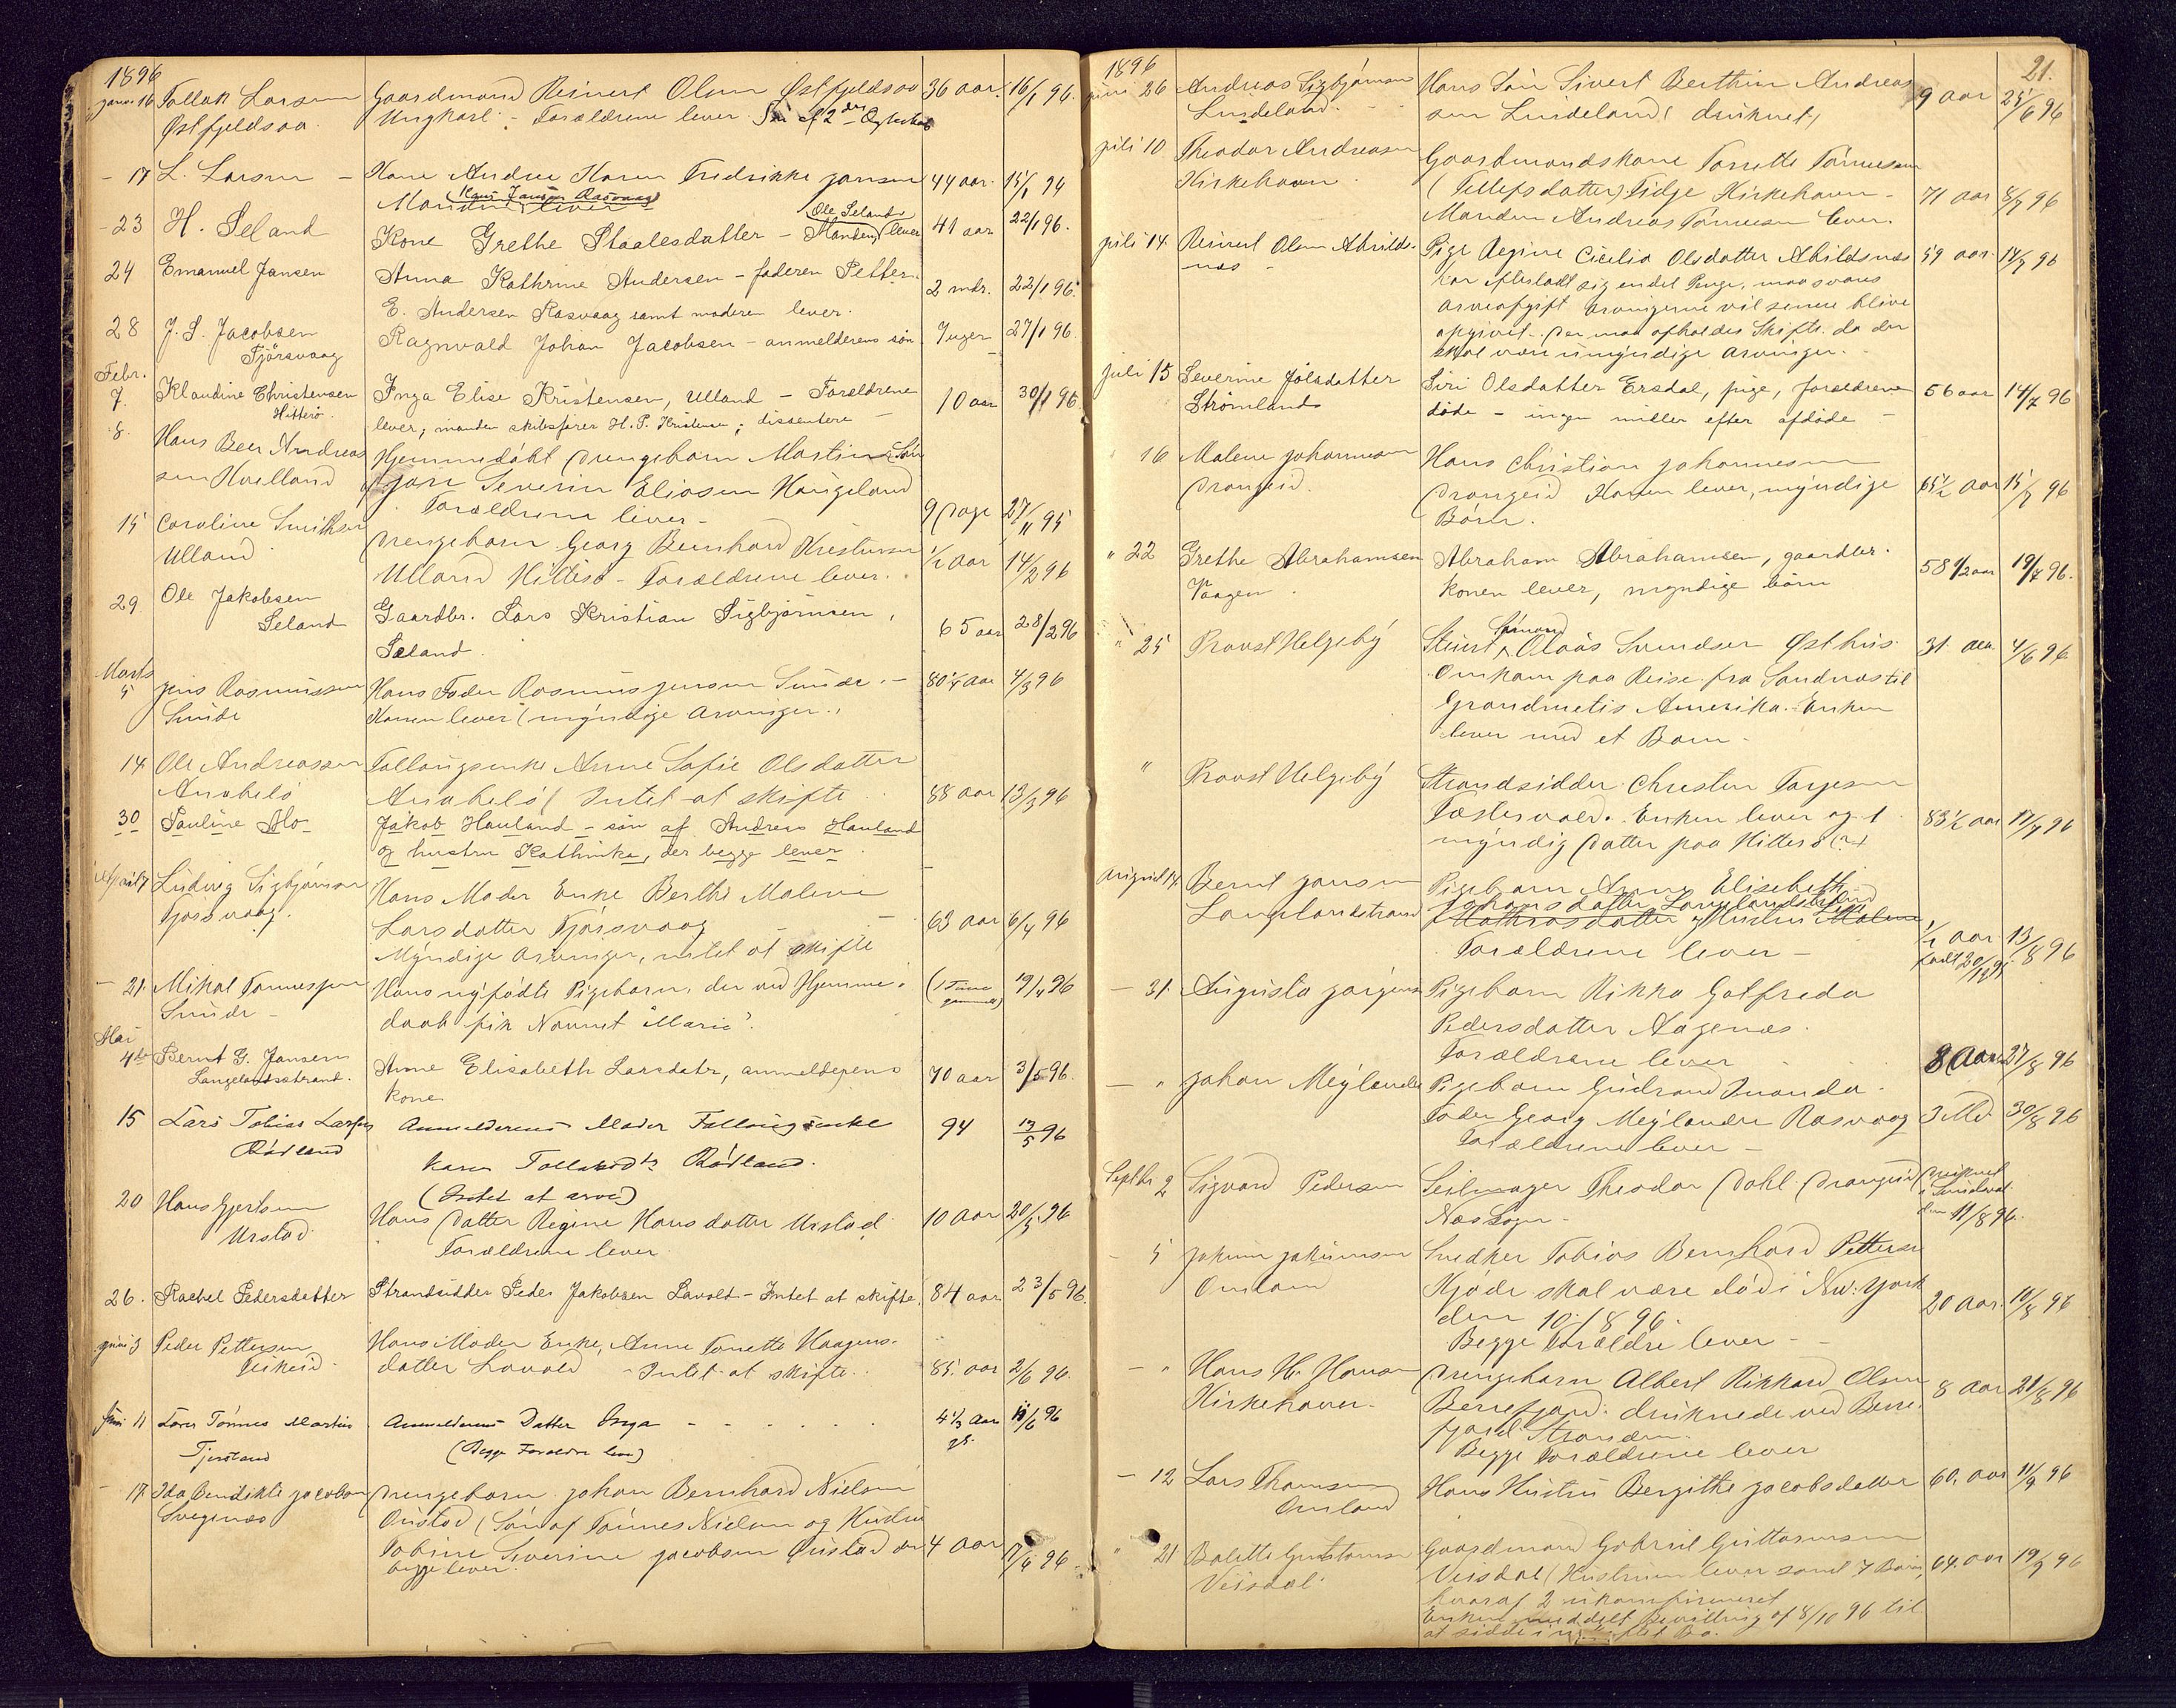 1896
Januar 16 Tollak Larsen Gaardmand Reinert Olsen Østfjeldsaa 36 aar. 16/1 96.
Østfjeldsaa Ungkarl - Forældrene lever. Søn af 2det Ægteskab
- 17 L. Larsen - Kone Andrea Karen Fredrikke Jansen 44 aar. 15/1 94
Manden (Hans Jansen Rasvaag) lever
- 23 H. Seland Kone Grethe Staalesdatter - Manden (Ole Seland) lever 41 aar 22/1 96.
24 Emanuel Jansen Anna Kathrine Andersen - faderen Petter 2 mdr. 22/1 96.
E. Andersen Rasvaag samt moderen lever.
28 J. S. Jacobsen Ragnvald Johan Jacobsen - anmelderens søn 7 uger 27/1 96
Fjørsvaag
Febr.
7. Klaudine Christensen Inga Elise Kristensen, Ulland - Forældrene 10 aar 30/1 96
Hitterø. lever, manden skibsfører H. P. Kristensen; dissentere
8. Hans Beer Andreas Hjemmedøbt Drengebarn Martin Søn
sen Hvelland af Jan Severin Eliasen Haugeland
Forældrene lever - 9 Dage 27/11 95
15 Caroline Smithsen Drengebarn Georg Bernhard Kristensen
Ulland Ulland Hitterø - Forældrene lever. 1/2 aar 14/2 96
29 Ole Jakobsen Gaardbr. Lars Kristian Sigbjørnsen, 65 aar 28/2 96
Seland Sæland.
Marts
5 Jens Rasmussen Hans Fader Rasmus Jensen Sunde. - 80 1/4 aar 4/3 96
Sunde Konen lever (myndige Arvinger.
14 Ole Andreassen Follaugsenke Anne Sofie Olsdatter
Anabelø Anabelø (Intet at skifte 88 aar 13/3 96
30 Pauline Mo Jakob Hauland - søn af Andreas Hauland
og hustru Kathinka, der begge lever
April 7 Ludvig Sigbjørnsen Hans Moder Enke Berthe Malene
Fjørsvaag. Larsdatter Fjørsvaag 63 aar 6/4 96
Myndige Arvinger, intet at skifte
- 21. Mikal Tønnessen Hans nyfødte Pigebarn, der ved Hjemme- (1 Time gammel) 19/4 96
Sunde - daab fik Navnet "Marie".
Mai
4de Bernt G. Jansen Anne Elisabeth Larsdatr, anmelderens 70 aar 3/5 96.
Langelandsstrand. kone
15 Lars Tobias Larsen Anmelderens Moder Follaugsenke 94 13/5 96
Rødland Karen Tollaksdtr Rødland.
(Intet at arve)
20 Hans Gjertsen Hans Datter Regine Hansdatter Urstad 10 Aar 20/5 96
Urstad Forældrene lever
26. Rachel Pedersdatter Strandsidder Peder Jakobsen Lavold - Intet at skifte. 84 aar 23/5 96.
Juni 3 Peder Pettersen Hans Moder Enke, Anne Tonette Haagens-
Eikeid datter Lovold - Intet at skifte. 85. aar 2/6 96.
Juni 11 Lars Tønnes Martin Anmelderens Datter Inga - - - - 4 1/3 Aar gl. 11/6 96
Tjørsland (Begge Forældre lever)
- 17 Ida Bendikte Jacobsen Drengebarn Johan Bernhard Nielsen
Svegenæs Ørustad (Søn af Tønnes Nielsen og Hustru
Tobine Severine Jacobsen Ørustad der 4 Aar 17/6 96
begge lever.
1896 21.
Juni 26 Andreas Sigbjørnsen Hans Søn Sivert Berthin Andreas 9 aar 25/6 96
Lindeland. sen Lindeland (druknet)
Juli 10 Theodor Andreasen Gaardmandskone Tonette Tønnesen
Kirkehavn (Tellefsdatter) Fidje Kirkehavn - 71 aar 8/7 96
Manden Andreas Tønnesen lever.
Juli 14. Reinert Olsen Abilds- Pige Regine Cecilia Olsdatter Abildsnæs 59 aar. 14/7 96
næs - har efterladt sig endel Penge, maa svares
arveafgift arvingerne vil senere blive
opgivet. Der maa afholdes Skifte da der
skal være umyndige arvinger.
Juli 15 Severine Joelsdatter Siri Olsdatter Ersdal, pige, forældrene 56 aar 14/7 96
Strømland døde - ingen midler efter afdøde -
16 Malene Johannesen Hans Christian Johannesen
Drangeid. Drangeid Konen lever, myndige 65 1/2 aar 15/7 96
Børn.
" 22 Grethe Abrahamsen Abraham Abrahamsen, gaardbr. 58 1/2 aar 19/7 96.
Vaagen. konen lever, myndige børn
" 25 Provst Helgeby Steuert Simond Olaus Svendsen Østhus 31 aar 4/6 96
Omkom paa Reise fra Sandnæs til
Grandmetis Amerika. Enken
lever med et Barn -
" Provst Helgeby Strandsidder Christen Torjesen
Fostervold. Enken lever og 1 83 1/2 aar 17/7 96
myndig Datter paa Hitterø
August 14 Bernt Jansen Pigebarn Anna Elisebeth
Langelandstrand Johansdatter Langelandstrand
Mathiasdatter og Hustru Malene
Forældrene lever - 1/2 aar 13/8 96
født 20/12 95.
- 31. Augusta Jørgensen Pigebarn Rikka Gotfreda
Pedersdatter Aagenæs.
Forældrene lever 8 Aar 27/8 96
- " Johan Meylænder Pigebarn Gudrand Inanda
Fader Georg Meylændre Rasvaag 3 Md 30/8 96
Forældrene lever -
Septbr 2 Sigvard Pedersen Seilmager Theodor Dahl Drangeid druknet
Næs Sogn - i Sundsval
den 11/8 96.
- 5 Jokum Jokumsen Snedker Tobias Bernhard Pettersen
Omland Kjøde skal være død i New: York 20 Aar. 10/8 96
den 10/8 96.
Begge Forældre lever -
- " Hans H. Hansen Drengebarn Albert Rikkard Olsen 8 aar 28/8 96
Kirkehavn. Berrefjord. druknede ved Berre-
fjord Stranden.
Begge Forældrene lever
- 12 Lars Thomsen Hans Hustru Bergithe Jacobsdatter 60. aar 11/9 96
Omland
" 21 Bolette Guttormsen Gaardmand Gabriel Guttormsen
Veisdal. Veisdal (Hustruen lever samt 7 Børn, 64. aar 19/9 96
hvoraf 2 ukonfirmeret
Enken meddelt Bevilling af 8/10 96 til
at sidde i uskiftet Bo.